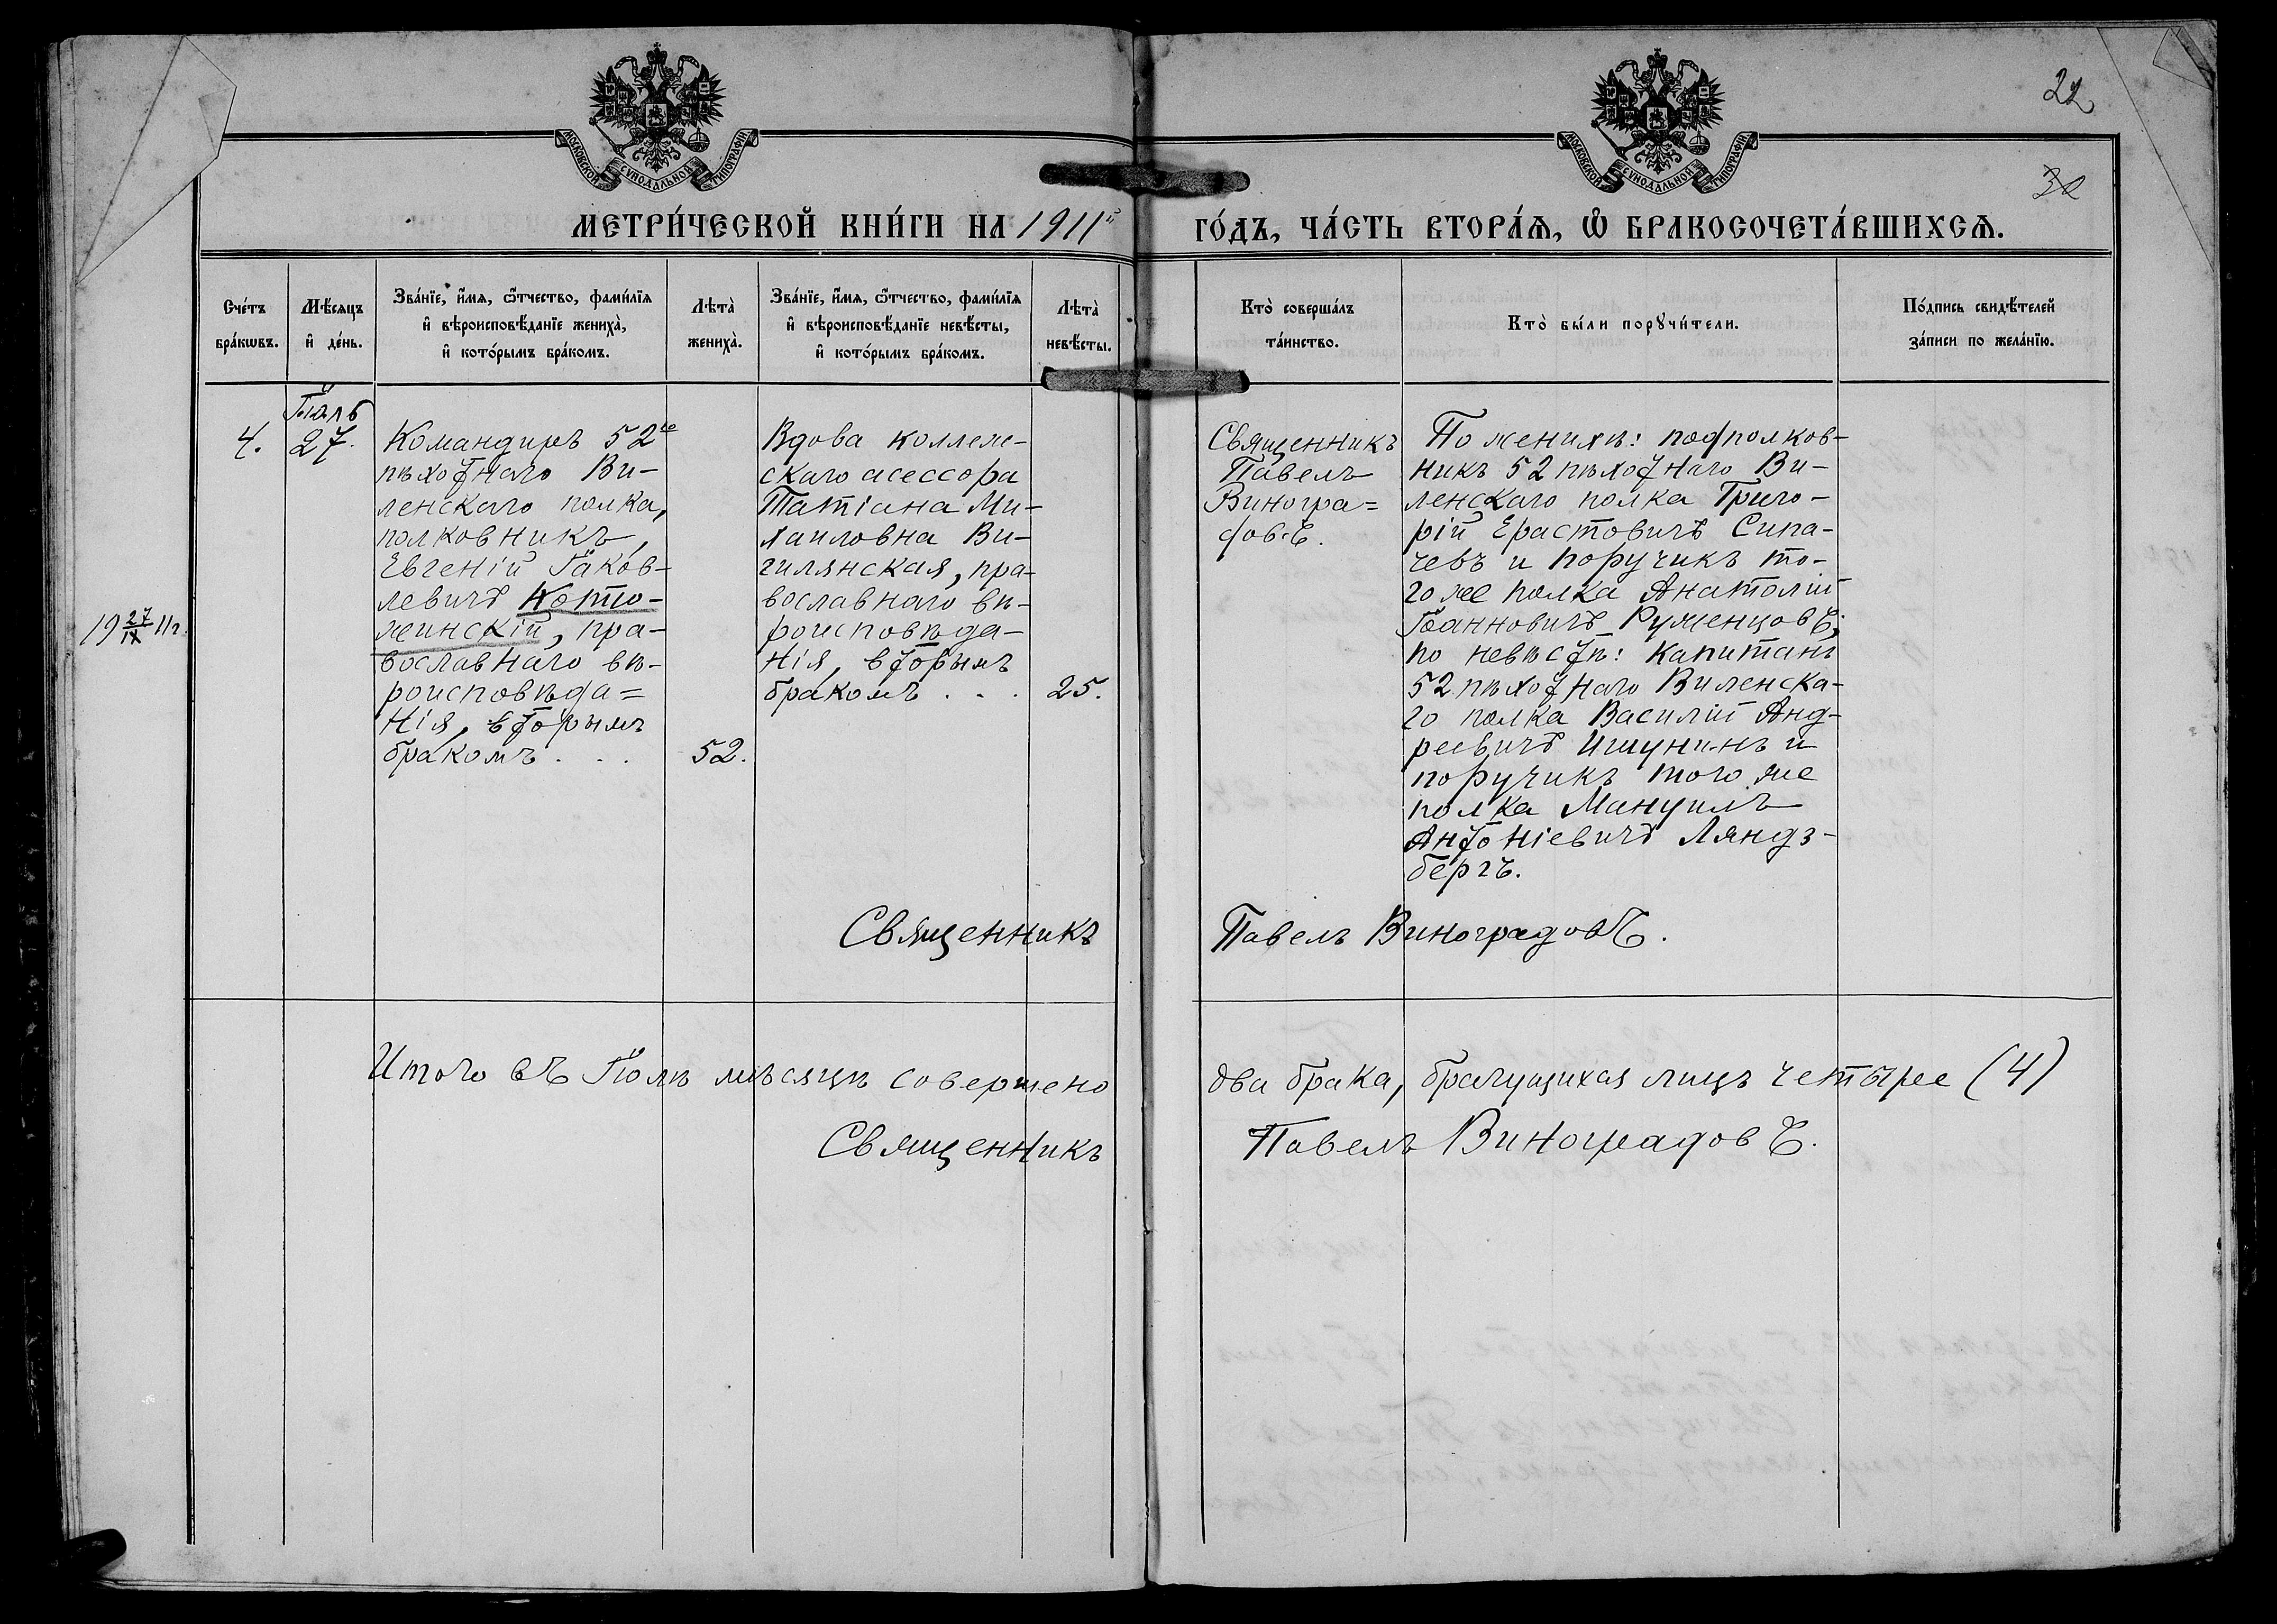 МОСКОВСКОЙ СУНОДАЛЬНОЙ ТИПОГРАФІИ
МОСКОВСКОЙ СУНОДАЛЬНОЙ ТИПОГРАФІИ
22
30
МЕТРИ́ЧЕСКОЙ КНИ́ГИ НА 1911й
ГО́ДЪ, ЧА́СТЬ ВТОРА́Ѧ, Ѡ҆ БРАКОСОЧЕТА́ВШИХСѦ.
Сче́тъ
бра́кѡвъ.
Мѣ́сяцъ
и҆ де́нь.
Зва́нїе, и҆́мѧ, ѻ҆́тчество, фами́лїѧ
и҆ вѣроисповѣ́данїе жениха̀,
и҆ кото́рымъ бра́комъ.
Лѣта̀
жениха̀.
Зва́нїе, и҆́мѧ, ѻ҆́тчество, фами́лїѧ
и҆ вѣроисповѣ́данїе невѣ́сты,
и҆ кото́рымъ бра́комъ.
Лѣта̀
невѣ́сты.
Кто̀ соверша́лъ
та́инство.
Кто̀ бы́ли порꙋчи́тели.
По́дпись свидѣ́телей
за́писи по жела́нїю.
4.
Іюль
27.
Командиръ 52го
пѣхотнаго Ви-
ленскаго полка,
полковникъ,
Евгеній Іаков-
левичъ Кото-
жинскій, пра-
вославнаго вѣ-
роисповѣда=
нія, вторымъ
бракомъ . . .
52.
Вдова коллеж-
скаго асессора
Татіана Ми-
хаиловна Ви-
гилянская, пра-
вославнаго вѣ-
роисповѣда-
нія, вторымъ
бракомъ . . .
25.
Священникъ
Павелъ
Виногра=
довъ.
По женихѣ: подполков-
никъ 52 пѣхотнаго Ви-
ленскаго полка Григо-
рій Ерастовичъ Сипа-
чевъ и поручикъ то-
го же полка Анатолій
Іоанновичъ Румянцовъ;
по невѣстѣ: капитанъ
52 пѣхотнаго Виленска-
го полка Василій Анд-
реевичъ Ишунинъ и
поручикъ того же
полка Мануилъ
Антоніевичъ Ляндз-
бергъ.
19 27/IX 11г.
Священникъ Павелъ Виноградовъ.
Итого въ Іюлѣ мѣсяцѣ совершено два брака, брачущихся лицъ четыре (4)
Священникъ Павелъ Виноградовъ.